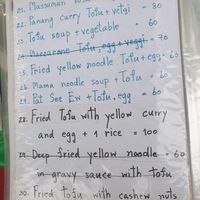 21. Massaman Tofu
22. Panang curry Tofu + vetgi = 80
23. Tofu soup + vegetable = 60
24. Maccaroni Tofu, egg + veggi = 70
25. Fried yellow noodle Tofu + egg = 60
26. Mama noodle soup + Tofu = 60
27. Pat See Ew + Tofu, egg = 60
28. Fried Tofu with yellow curry
and egg + 1 rice = 100
29. Deep fried yellow noodle = 60
in gravy sauce with tofu
30. Fried tofu with cashew nuts